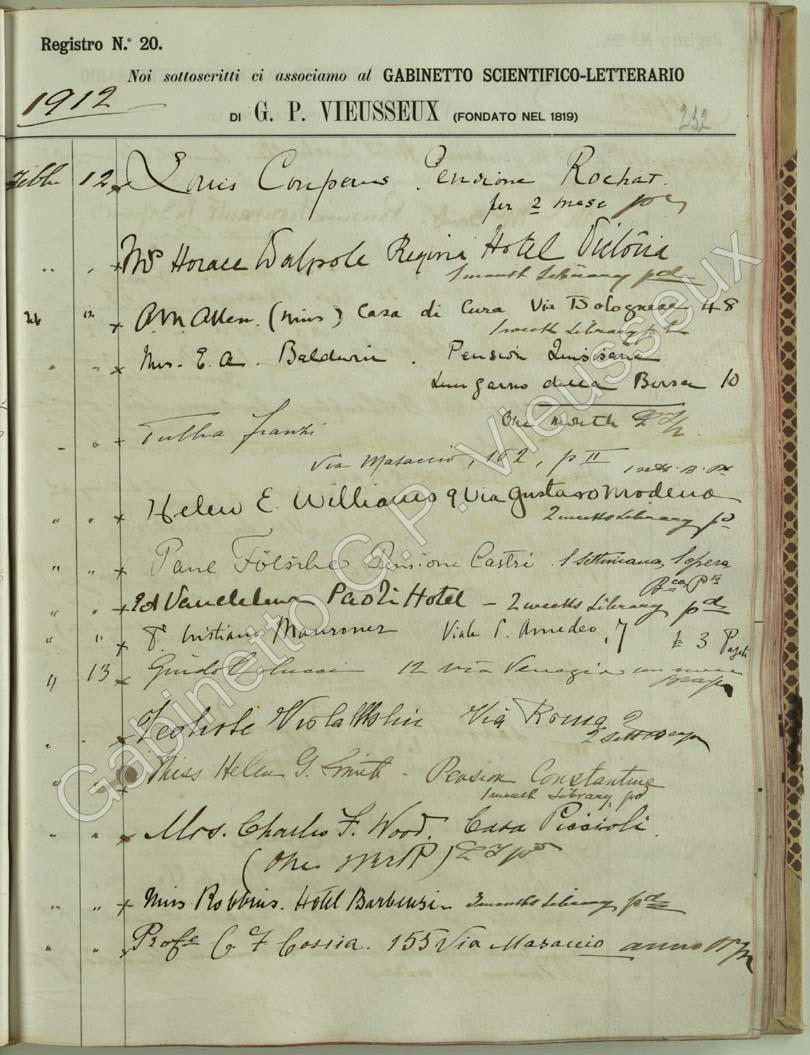 Registro N.º 20.
Noi sottoscritti ci associamo al GABINETTO SCIENTIFICO-LETTERARIO
1912
DI G. P. VIEUSSEUX (FONDATO NEL 1819)
232
Febb 12 Louis Couperus Pensione Rochat.
per 2 mesi
" " Mrs Horace Walpole Regina Hotel Victoria
1 month Library pd
A.M. Allen. (Miss) Casa di Cura Via Bolognese 48
1 month Library pd
Mrs. E. A. Baldwin. Pension Quisisana
Lungarno della Borsa 10
One month
Tullia Franzi
Via Masaccio, 162, p II
" " Helen E. Williams 9 Via Gustavo Modena
2 weeks Library pd
" " Pensione Castri. 1 settimana, 1 opera
" " Vandeleur Paoli Hotel - 2 weeks Library pd
" " Cristiano Viale P. Amedeo, 7 £ 3
" 13 Guido 12 via Venezia un mese
Via Roma 2
Miss Helen G. Smith - Pension Constantine
1 month Library, pd
" " Mrs. Charles F. Wood. Casa Piccioli.
" " Miss Robbins. Hotel Barbensi 3 months Library pd
" " Profe 155 Via Masaccio anno
Gabinetto G.P. Vieusseux